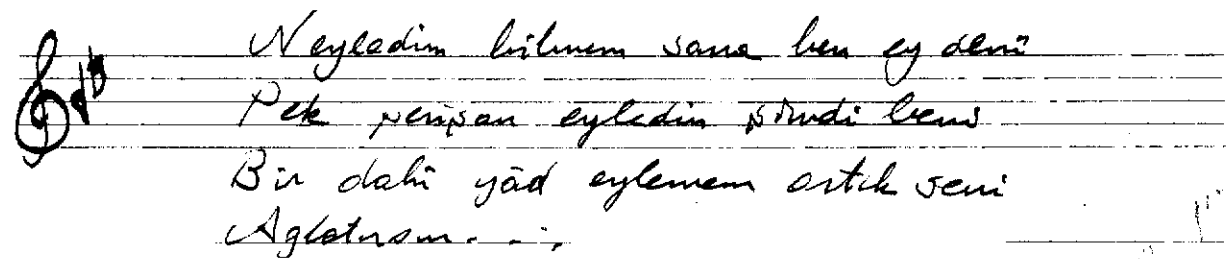 Neyledim bilmem sana ben ey denî
Pek perişan eyledin şimdi beni
Bir dahi yâd eylemem artık seni
Ağlatırsın...